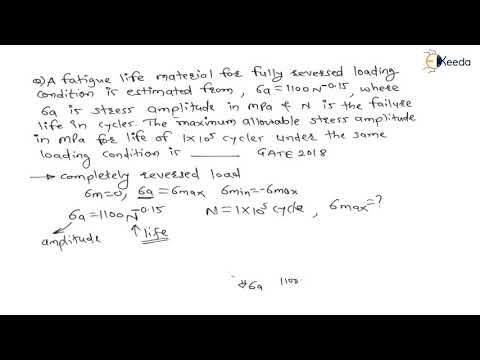 Q) A fatigue life material for fully reversed loading
condition is estimated from, σa = 1100 N^-0.15, where
σa is stress amplitude in MPa & N is the failure
life in cycles. The maximum allowable stress amplitude
in MPa for life of 1×10^5 cycler under the same
loading condition is _______ GATE 2018
→ completely reversed load
σm=0, σa=σmax σmin=-σmax
σa=1100N^-0.15 N=1×10^5 cycle, σmax=?
amplitude life
σa 1100
Keeda